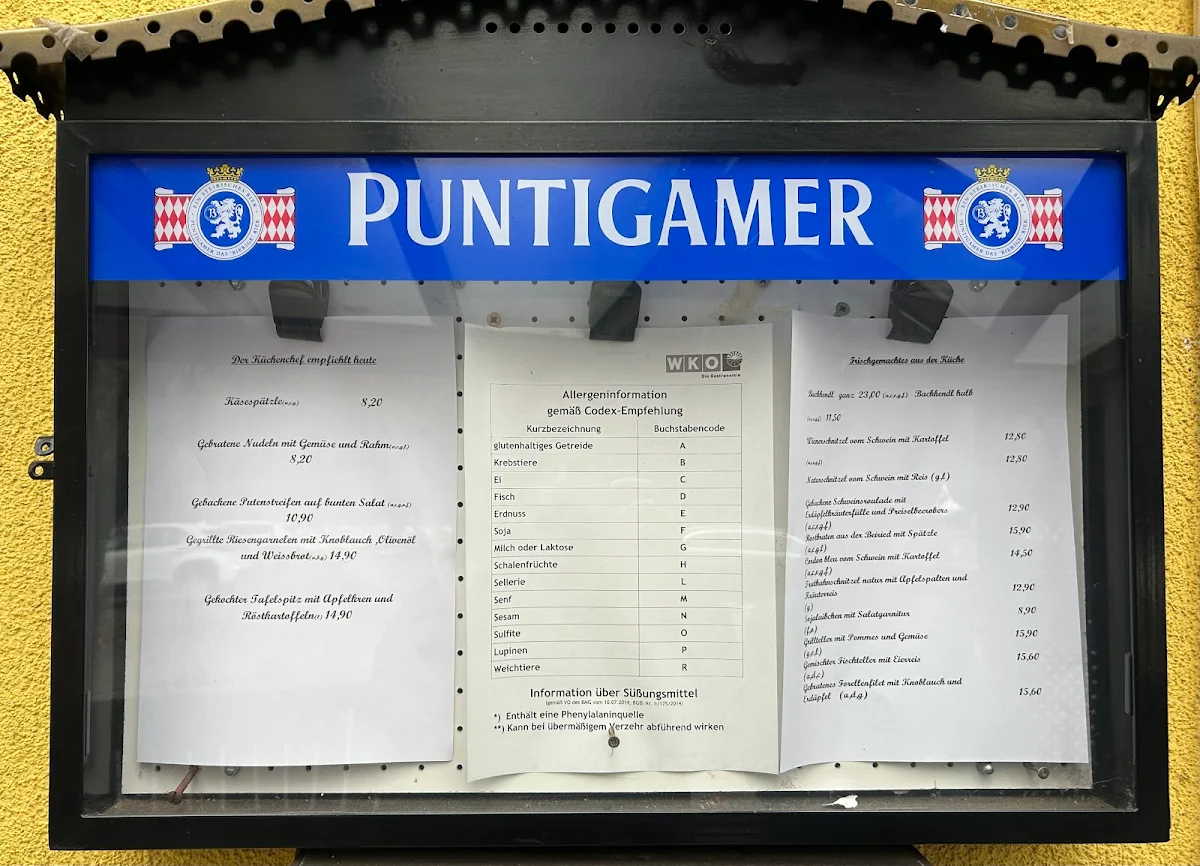 PUNTIGAMER
EIN STEIRISCHES BIER
PUNTIGAMER DAS "BIERIGE" BIER
EIN STEIRISCHES BIER
PUNTIGAMER DAS "BIERIGE" BIER
Der Küchenchef empfiehlt heute
Käsespätzle(a,c,g) 8,20
Gebratene Nudeln mit Gemüse und Rahm
8,20
Gebackene Putenstreifen auf bunten Salat
10,90
Gegrillte Riesengarnelen mit Knoblauch ,Olivenöl
und Weissbrot 14,90
Gekochter Tafelspitz mit Apfelkren und
Röstkartoffeln 14,90
WKO
Die Gastronomie
Allergeninformation
gemäß Codex-Empfehlung
Kurzbezeichnung Buchstabencode
glutenhaltiges Getreide A
Krebstiere B
Ei C
Fisch D
Erdnuss E
Soja F
Milch oder Laktose G
Schalenfrüchte H
Sellerie L
Senf M
Sesam N
Sulfite O
Lupinen P
Weichtiere R
Information über Süßungsmittel
(gemäß VO des BMG vom 10.07.2014, BGBl Nr. II/175/2014)
*) Enthält eine Phenylalaninquelle
**) Kann bei übermäßigem Verzehr abführend wirken
Frischgemachtes aus der Küche
Backhendl ganz 23,00 Backhendl halb
11,50
Wienerschnitzel vom Schwein mit Kartoffel 12,80
12,80
Naturschnitzel vom Schwein mit Reis (g,l)
Gebackene Schweinsroulade mit
Erdäpfelkräuterfülle und Preiselbeerobers 12,90
Rostbraten aus der Beiried mit Spätzle 15,90
Cordon bleu vom Schwein mit Kartoffel 14,50
Truthahnschnitzel natur mit Apfelspalten und
Kräuterreis 12,90
(g)
Sojalaibchen mit Salatgarnitur 8,90
Grillteller mit Pommes und Gemüse 15,90
Gemischter Fischteller mit Eierreis 15,60
(a,d,c)
Gebratenes Forellenfilet mit Knoblauch und
Erdäpfel (a,d,g) 15,60